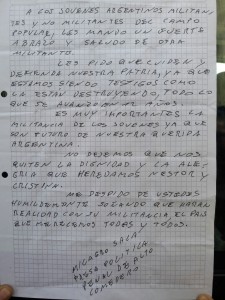 A LOS JOVENES ARGENTINOS MILITAN-
TES Y NO MILITANTES DEL CAMPO
POPULAR, LES MANDO UN FUERTE
ABRAZO Y SALUDO DE OTRA
MILITANTE.
LES PIDO QUE CUIDEN Y
DEFIENDAN NUESTRA PATRIA, YA QUE
ESTAMOS SIENDO TESTIGOS COMO
LA ESTAN DESTRUYENDO, TODO LO
QUE SE AVANZO EN 12 AÑOS.
ES MUY IMPORTANTES LA
MILITANCIA DE LOS JOVENES YA QUE
SON FUTURO DE NUESTRA QUERIDA
ARGENTINA.
NO DEJEMOS QUE NOS
QUITEN LA DIGNIDAD Y LA ALE-
GRIA QUE HEREDAMOS NESTOR Y
CRISTINA.
ME DESPIDO DE USTEDES
HUMILDEMENTE ROGANDO QUE HARAN
REALIDAD CON SU MILITANCIA, EL PAIS
QUE MERECEMOS TODAS Y TODOS.
MILAGRO SALA
PRESA POLITICA
PENAL DE ALTO
COMEDERO